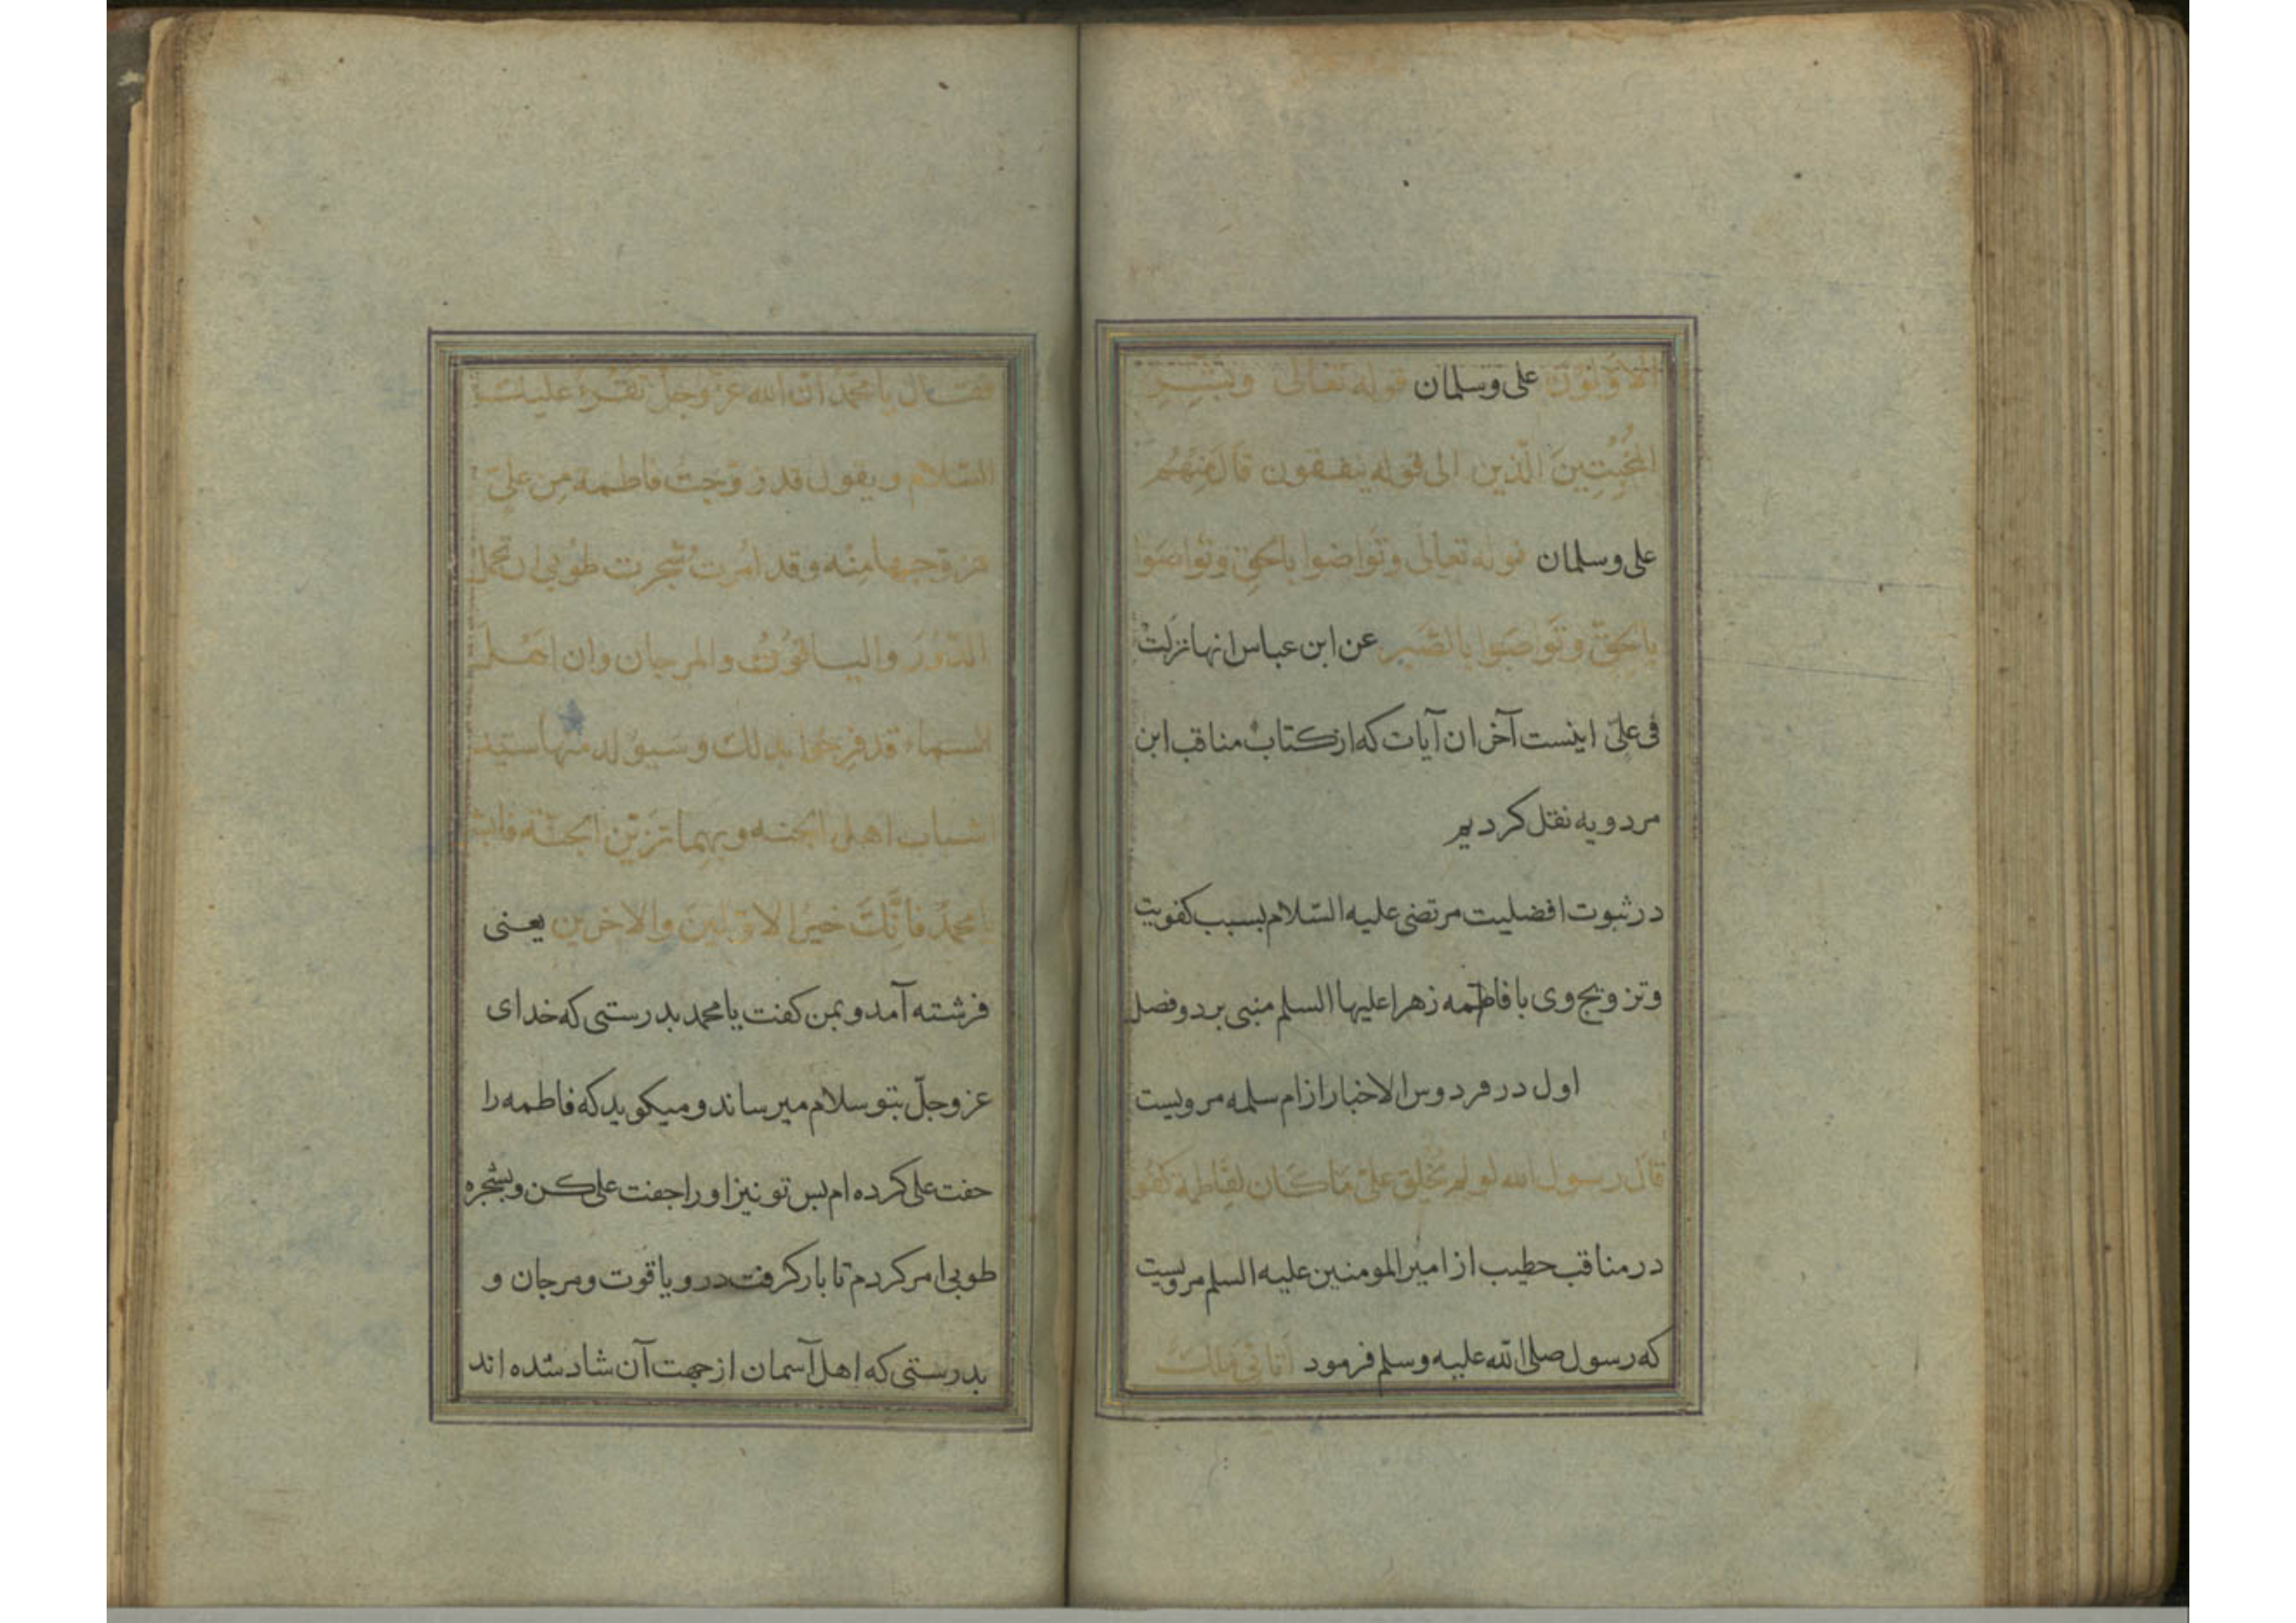 الاولون علی وسلمان قوله تعالی وبشر
المُخبِتِينَ الّذين الی قوله ینفقون قال مِنْهُم
علی وسلمان قوله تعالی وتَواصَوا بالحق وتواصَوا
بالحقّ وتَواصَوا بالصَّبر عن ابن عباس انها نزلتْ
فی علیّ اینست آخر ان آیات که از کتاب مناقب ابن
مردویه نقل کردیم
در ثبوت افضلیت مرتضی علیه السّلام بسبب کفویت
وتزویج وی با فاطمه زهرا علیها السلم منبی بر دو فصل
اول در فردوس الاخبار از ام سلمه مرویست
قال رسول الله لو لم يُخلق علیّ ما کان لفاطمة کفو
در مناقب حطیب از امیر المومنین علیه السلم مرویست
که رسول صلی الله علیه وسلم فرمود اتانی ملك
فقال یا محمد ان الله عزوجل یقرء علیك
السّلام ویقول قد زوّجتُ فاطمة مِن علیّ
فزوجها مِنْه وقد امرتُ شجرت طوبی ان تحمل
الدّرَر والیاقوت والمرجان وان اهل
السماء قد فرحوا بذلك وسیولد منها سید
شباب اهل الجنه وبهما تزین الجنّة فابشر
یا محمد فانّكَ خیرُ الاولین والاخرین یعنی
فرشته آمد و بمن کفت یا محمد بدرستی که خدای
عز وجلّ بتو سلام میرساند و میکوید که فاطمه را
حفت علی کرده ام بس تو نیز او را جفت علی کن و بشجره
طوبی امر کردم تا بار کرفت در و یاقوت و مرجان و
بدرستی که اهل آسمان از جهت آن شاد شده اند